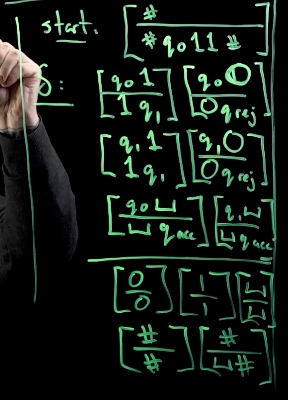 start: [ # / # q₀ 1 1 # ]
δ: [ q₀ 1 / 1 q₁ ] [ q₀ 0 / 0 q rej ]
[ q₁ 1 / 1 q₁ ] [ q₁ 0 / 0 q rej ]
[ q₀ ⊔ / ⊔ q acc ] [ q₁ ⊔ / ⊔ q acc ]
[ 0 / 0 ] [ 1 / 1 ] [ ⊔ / ⊔ ]
[ # / # ] [ # / ⊔ # ]